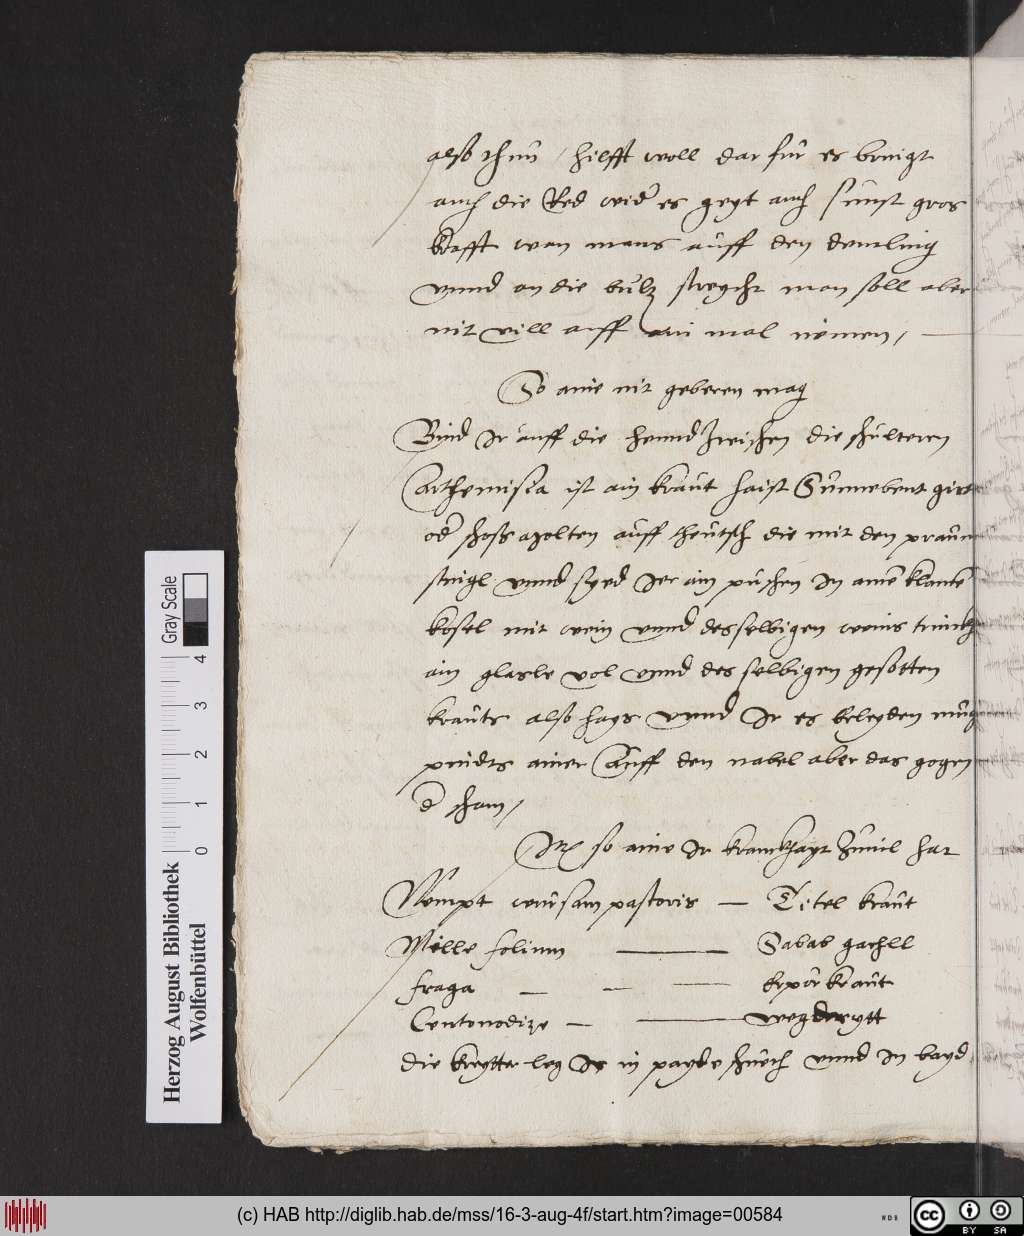 also thun / hilfft woll dar für es bringt
auch die Red wider es geyt auch sunst gros
krafft wan mans auff den deurling
vnnd an die bulz streycht man soll aber
nit vill auff ain mal nemen /
So aine nit geberen mag
Bind Ir auff die hennd zwischen die schulteren
Arthemisia ist ain kraut haist Sunnebent girt
oder auff theutsch die mit den praun
stingl vnnd syed Ier ain puschen In ainem
mit wein vnnd desselbigen weins trinckh
ain glasle vol vnnd desselbigen gesotten
krauts also hays vnnd Ir es beleyden mug
pindts ainer Auff den nabel aber das gegen
d scham /
Itz so aine Ir krankhayt Zuuil hat
Nempt wursam pastoris — Titel kraut
Mille folium — Sabab garhll
fraga — — — krpör kraut
Centonodize — — wegderytt
die kreytter leg Ir in payde schuech vnnd In bayd
Herzog August Bibliothek
Wolfenbüttel
0 1 2 3 4
Gray Scale
(c) HAB http://diglib.hab.de/mss/16-3-aug-4f/start.htm?image=00584
cc BY SA